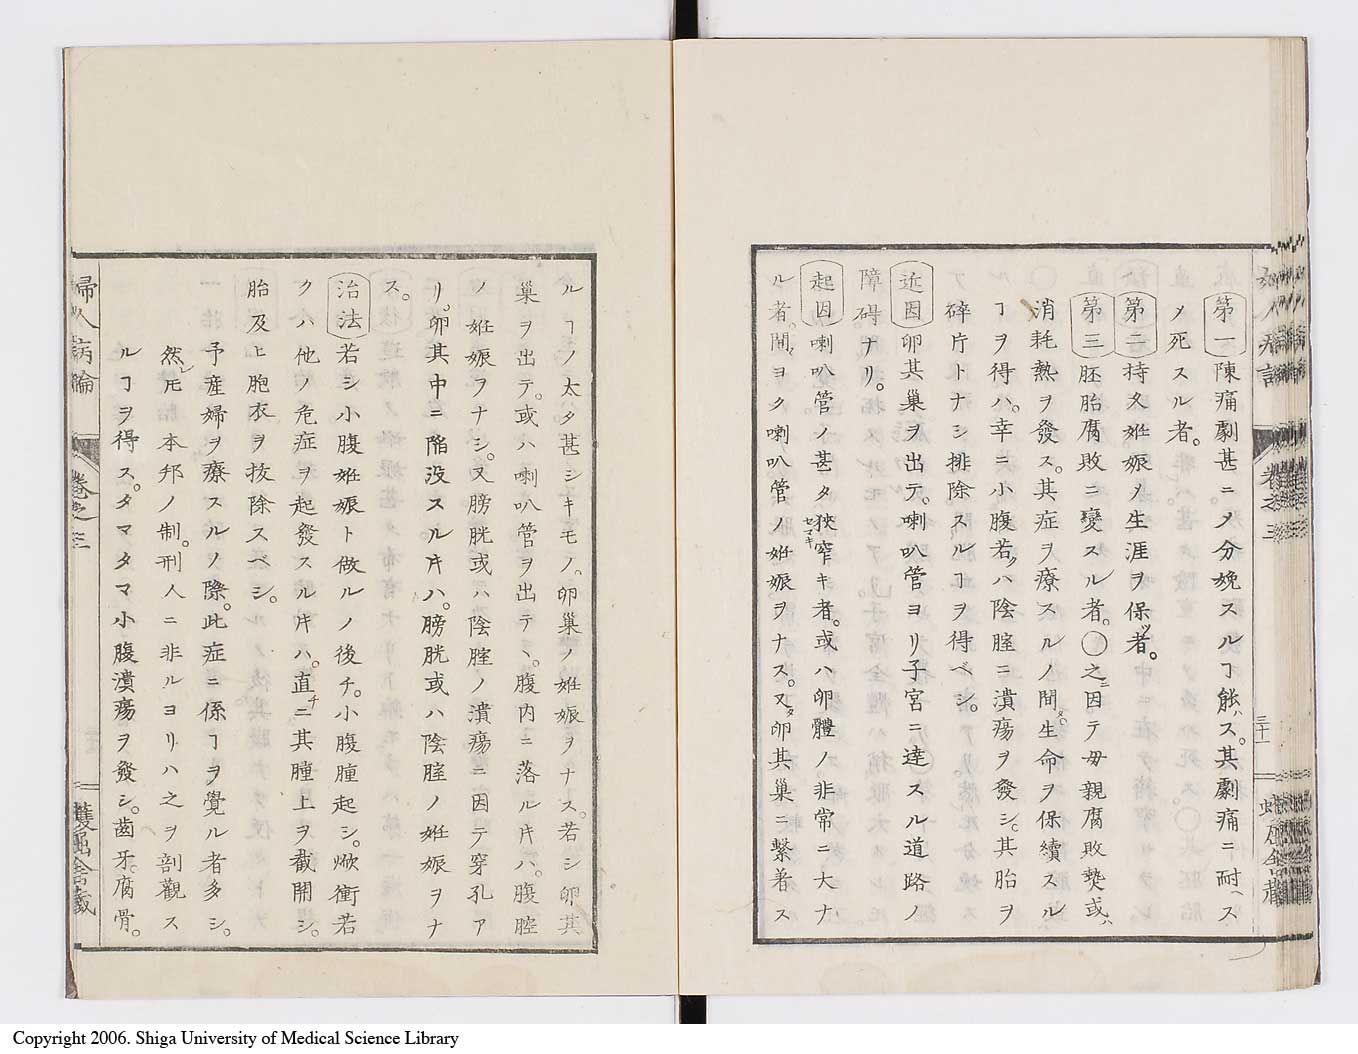 第一陳痛劇甚ニ〆分娩スルヿ能ハス。其劇痛ニ耐ヘス
ノ死スル者。
第二持久姙娠ノ生涯ヲ保ツ者。
第三胚胎腐敗ニ變スル者。〇之ニ因テ母親腐敗熱或ハ
消耗熱ヲ發ス。其症ヲ療スルノ間タ。生命ヲ保續スル
ヿヲ得ハ。幸ニ小腹若クハ陰腟ニ潰瘍ヲ發シ。其胎ヲ
碎片トナシ排除スルヿヲ得ベシ。
近因卵其巢ヲ出テ。喇叭管ヨリ子宮ニ達スル道路ノ
障碍ナリ。
起因喇叭管ノ甚タ狹窄セマキキ者。或ハ卵體ノ非常ニ大ナ
ル者。間マヨク喇叭管ノ姙娠ヲナス。又タ卵其巢ニ繫着ス
三十一
ルヿノ太タ甚シキモノ。卵巢ノ姙娠ヲナス。若シ卵其
巢ヲ出テ。或ハ喇叭管ヲ出テヽ。腹内ニ落ルキハ。腹腔
ノ姙娠ヲナシ。又膀胱或ハ陰腟ノ潰瘍ニ因テ穿孔ア
リ。卵其中ニ陷没スルキハ。膀胱或ハ陰腟ノ姙娠ヲナ
ス。
治法若シ小腹姙娠ト做ルノ後チ。小腹腫起シ。焮衝若
クハ他ノ危症ヲ起發スルキハ。直チニ其腫上ヲ截開シ。
胎及ヒ胞衣ヲ抜除スベシ。
予産婦ヲ療スルノ際。此症ニ係ヿヲ覺ル者多シ。
然レ𪜈本邦ノ制。刑人ニ非ルヨリハ之ヲ剖觀ス
ルヿヲ得ス。タマタマ小腹潰瘍ヲ發シ。齒牙。腐骨。
婦人病論
卷之三
雙龜舎藏